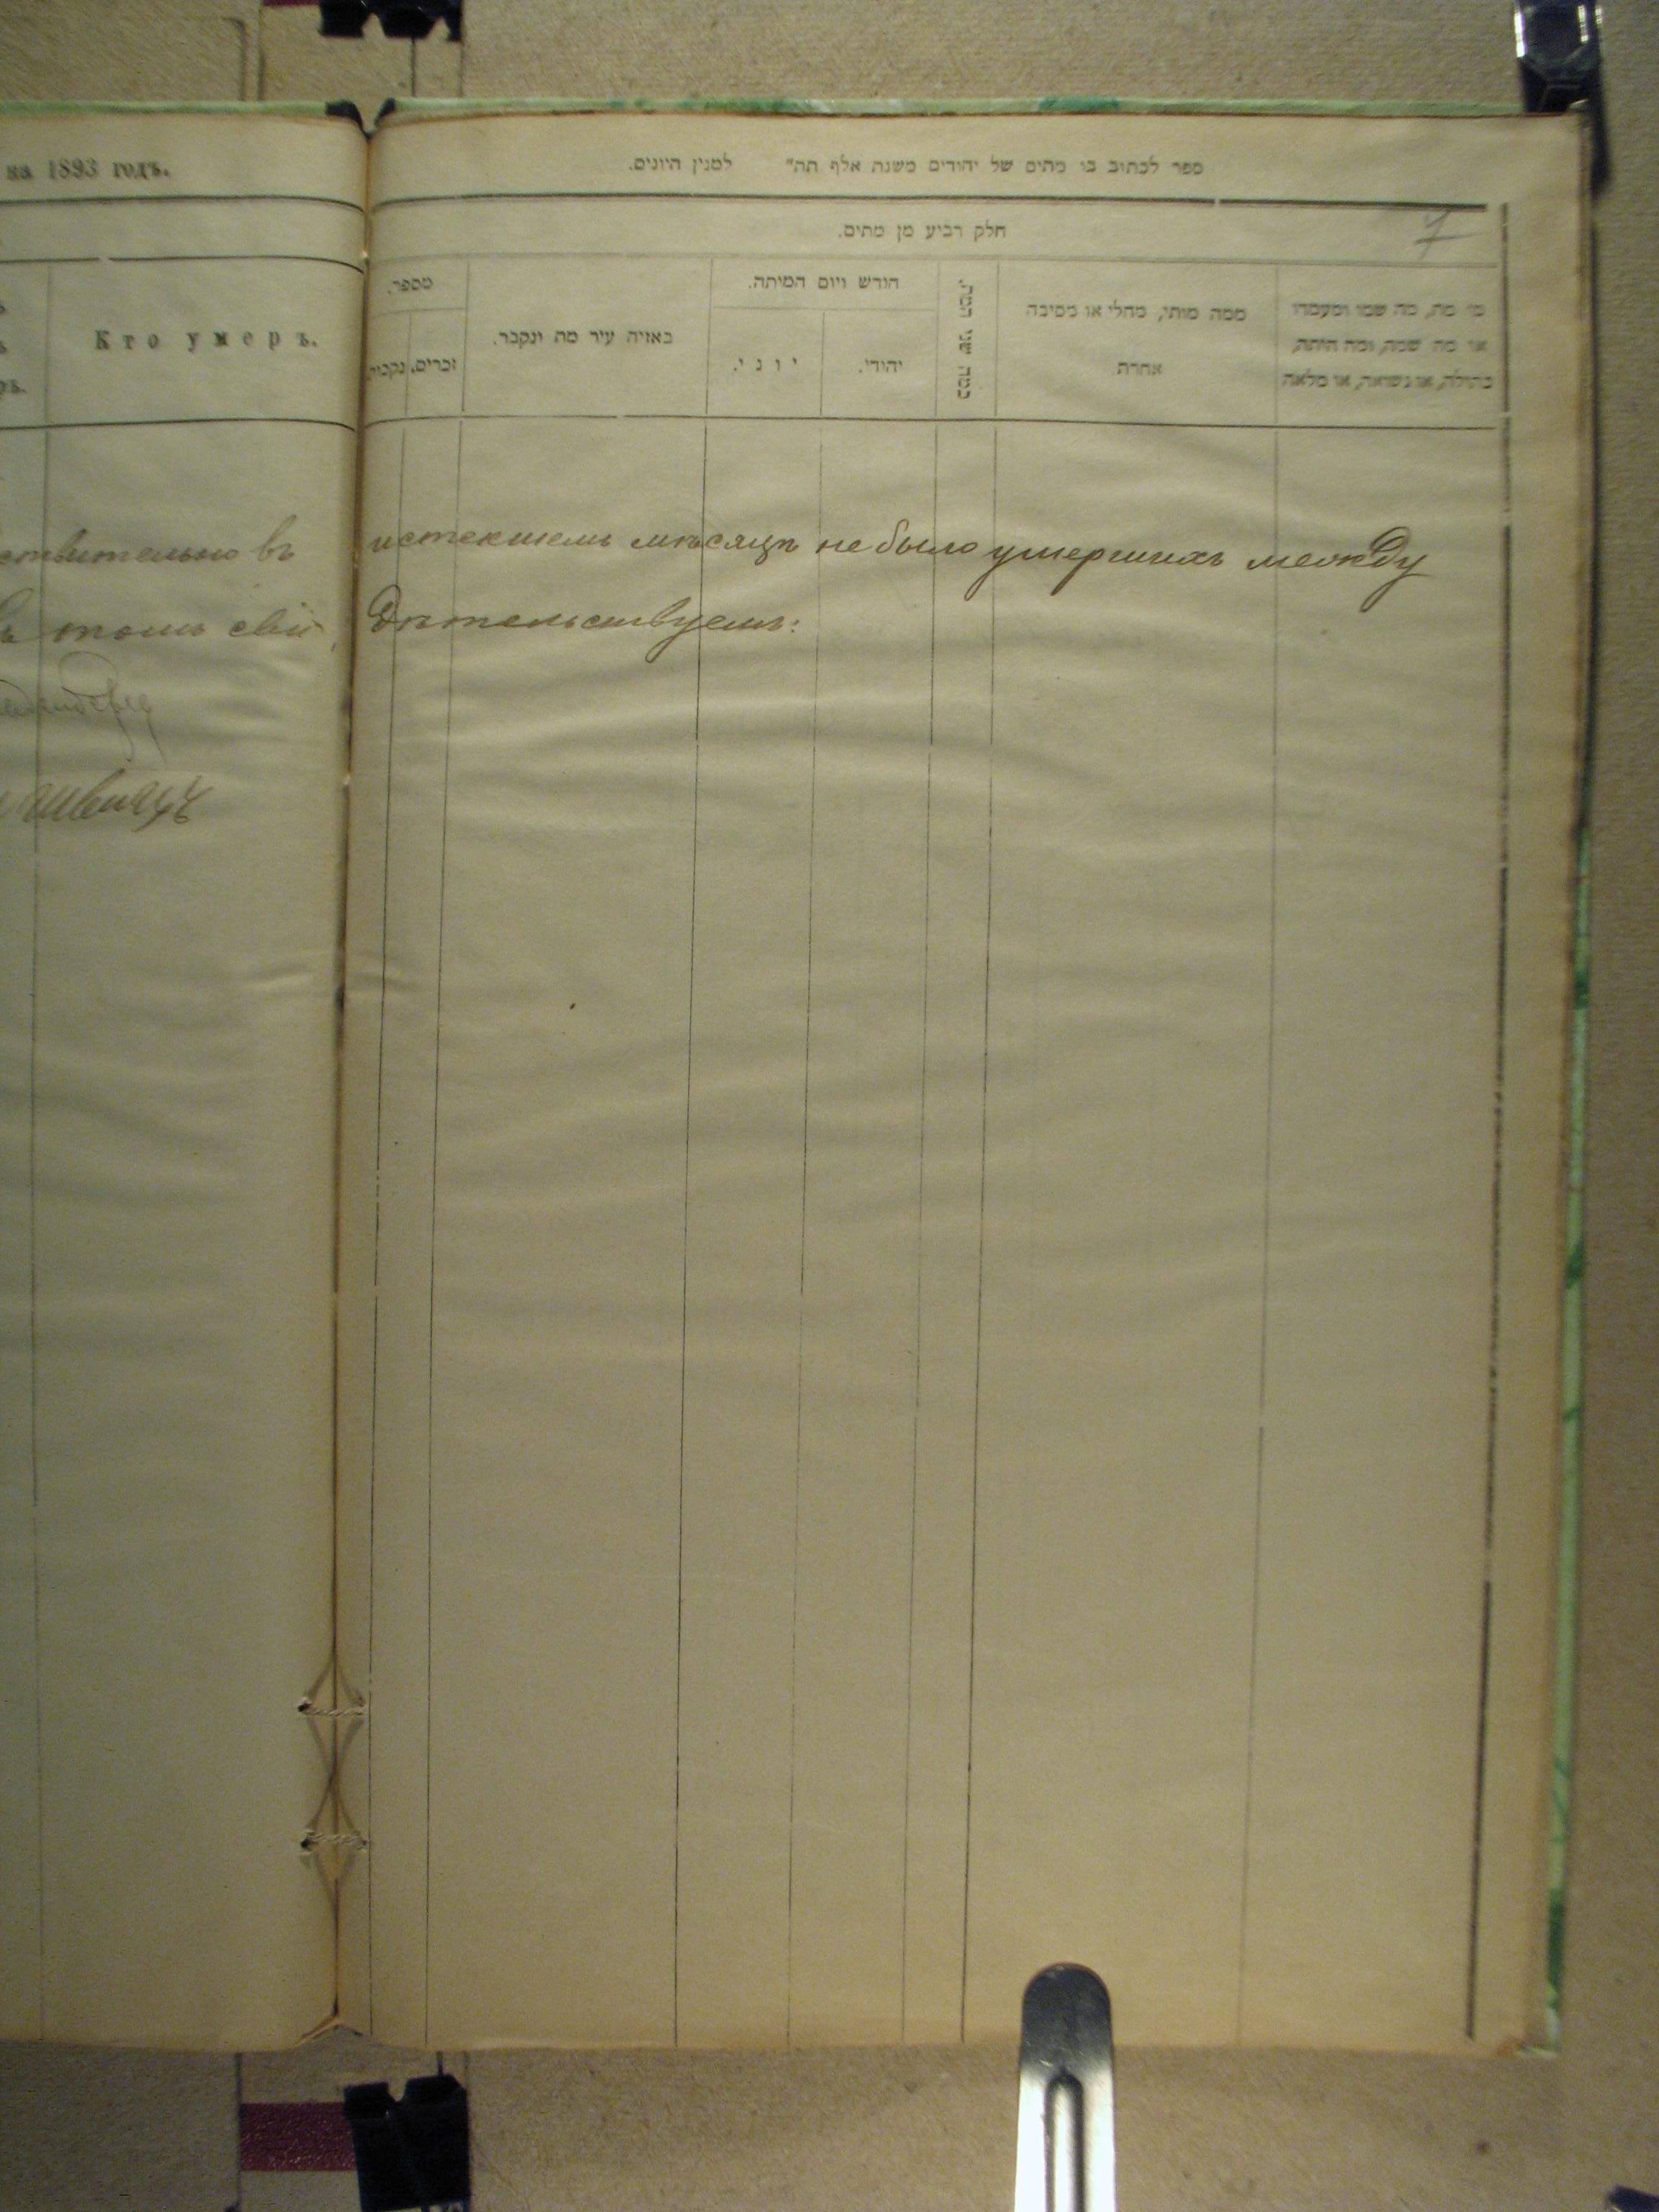 на 1893 годъ.
Кто умеръ.
ствительно въ
томъ сви
ספר לכתוב בו מתים של יהודים משנת אלף תה״ למנין היונים.
7
חלק רביע מן מתים.
מספר.
זכרים.
נקבות
באזיה עיר מת ונקבר.
חודש ויום המיתה.
יוני.
יהודי.
כמה שני המת.
ממה מותו, מחלי או מסיבה
אחרת
מי מת, מה שמו ומעמדו
או מה שמה, ומה היתה,
בתולה, או נשואה, או מלאה
истекшемъ мѣсяцѣ не было умершихъ между
дѣтельствуемъ: